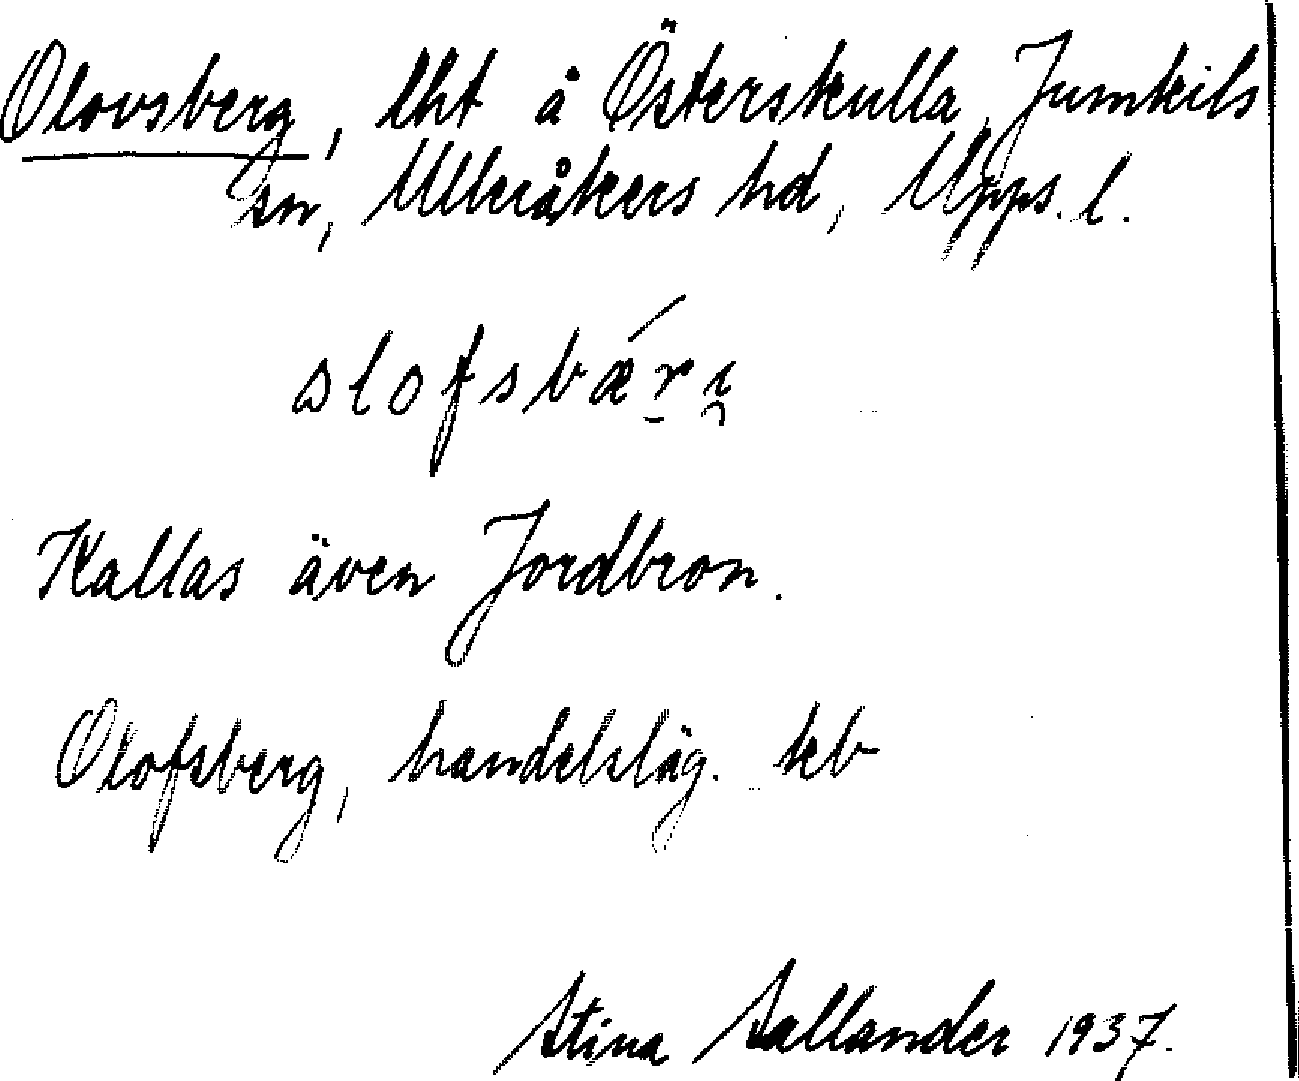 Olovsberg, lht å Österskulla, Jumkils
sn, Ulleråkers hd, Upps. l.
Kallas även Jordbron.
Olofsberg, handelsläg. kb
Stina Sallander 1937.